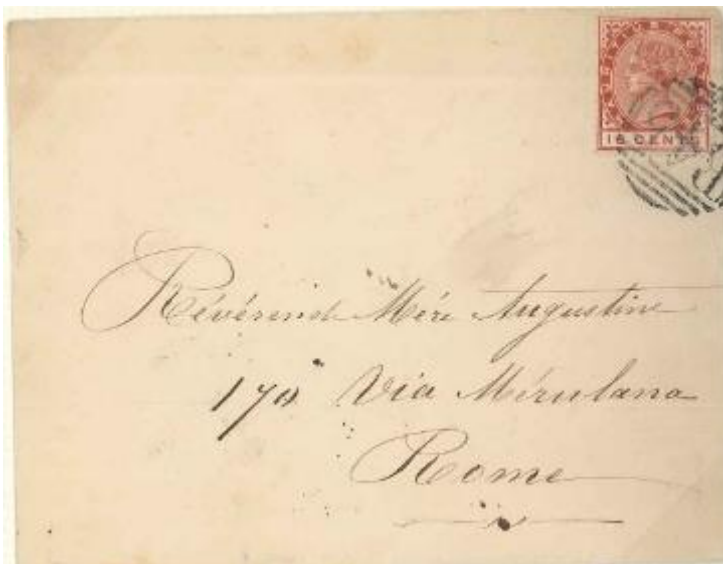 16 CENTS
Révérende Mère Augustine
170 Via Mérulana
Rome